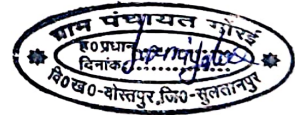 ग्राम पंचायत गोरई
ह0 प्रधान
दिनांक
वि0ख0-दोस्तपुर, जि0-सुलतानपुर